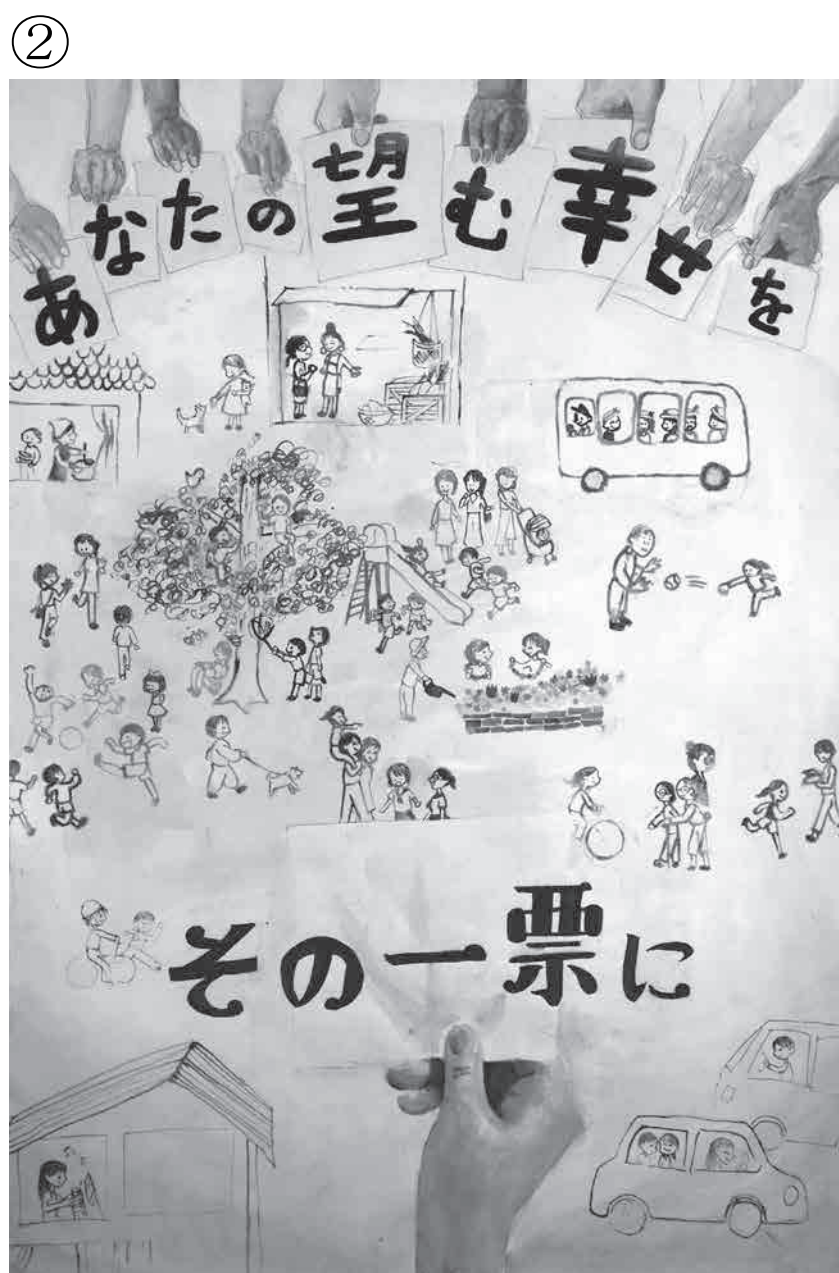 ②
あなたの望む幸せを
その一票に